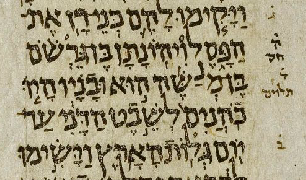 וַיָּקִימוּ לָהֶם בְּנֵי דָן אֶת־
הַפָּסֶל וִיהוֹנָתָן בֶּן גֵּרְשֹׁם
בֶּן מְנַשֶּׁה הוּא וּבָנָיו הָיוּ
כֹהֲנִים לְשֵׁבֶט הַדָּנִי עַד
יוֹם גְּלוֹת הָאָרֶץ וַיָּשִׂימוּ
חס
תלוים
ב